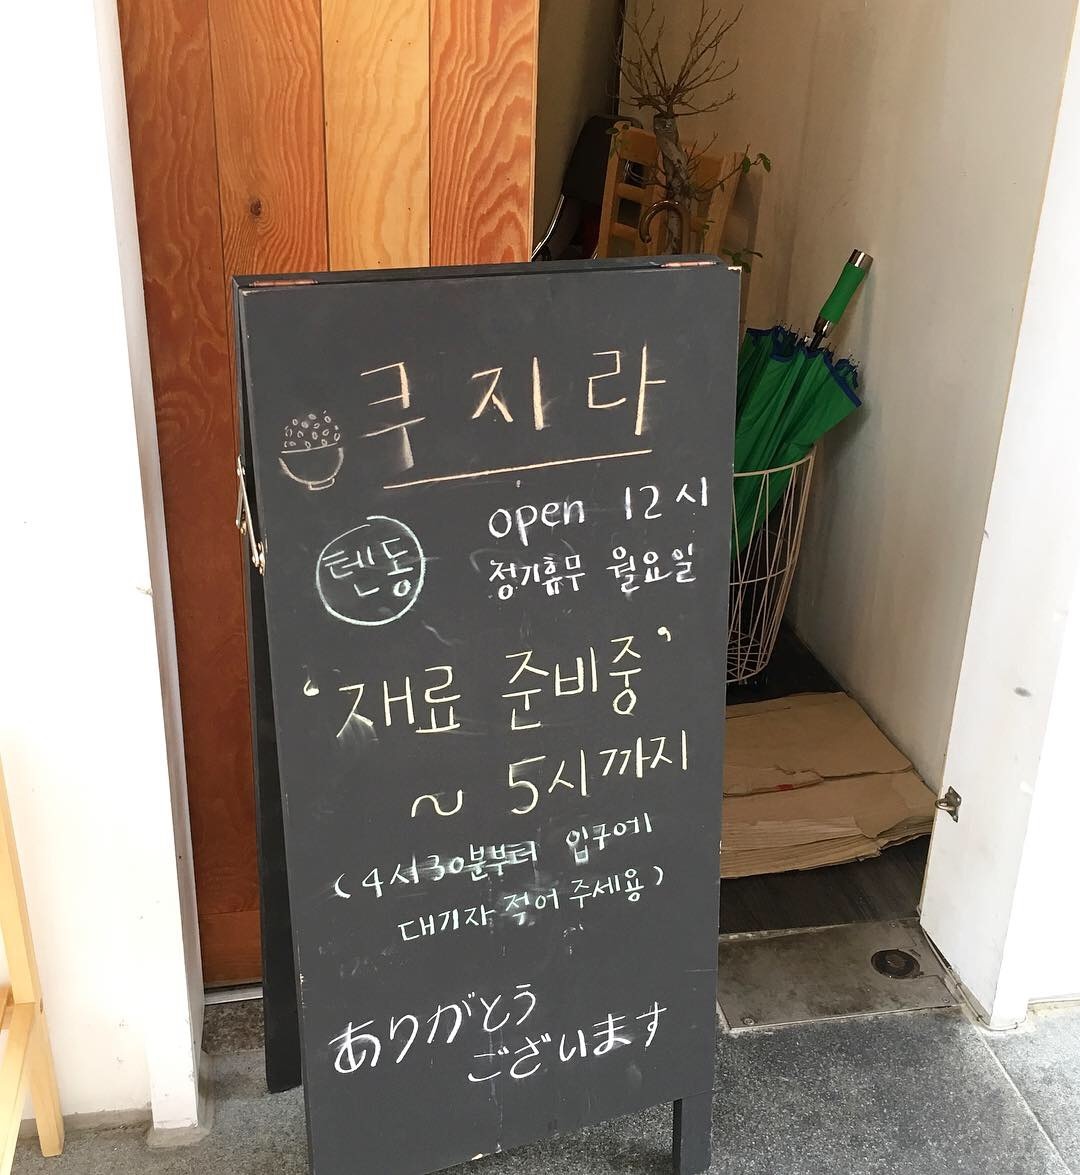 쿠자라
open 12시
텐동
정기휴무 월요일
'재료 준비중'
~ 5시까지
(4시30분부터 입구에
대기자 적어 주세용)
ありがとう
ございます